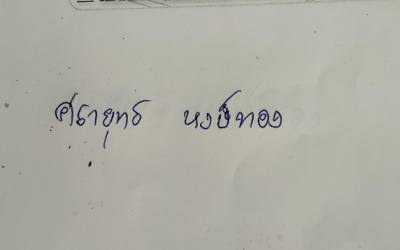 ศรายุทธ หงษ์ทอง